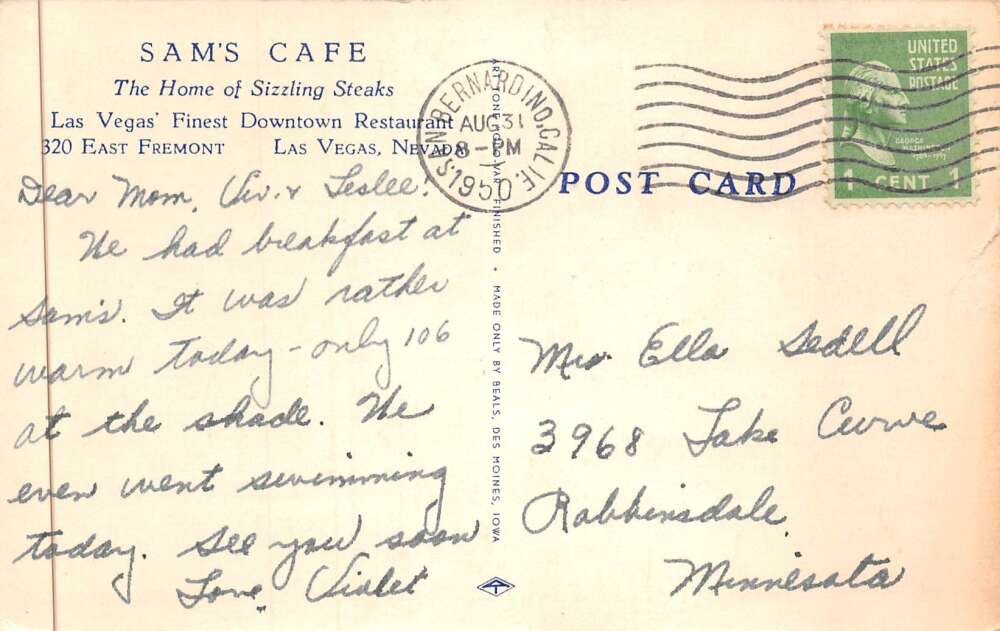 SAM'S CAFE
The Home of Sizzling Steaks
Las Vegas' Finest Downtown Restaurant
320 EAST FREMONT LAS VEGAS, NEVADA
Dear Mom, Viv. & Leslee:
We had breakfast at
Sam's. It was rather
warm today - only 106
at the shade. We
even went swimming
today. See you soon
Love, Violet
SAN BERNARDINO, CALIF.
AUG 31
8-PM
1950
FINISHED • MADE ONLY BY BEALS, DES MOINES, IOWA
POST CARD
UNITED
STATES
POSTAGE
GEORGE
WASHINGTON
1 CENT 1
Mrs. Ella Sedell
3968 Lake Curve
Robbinsdale,
Minnesota